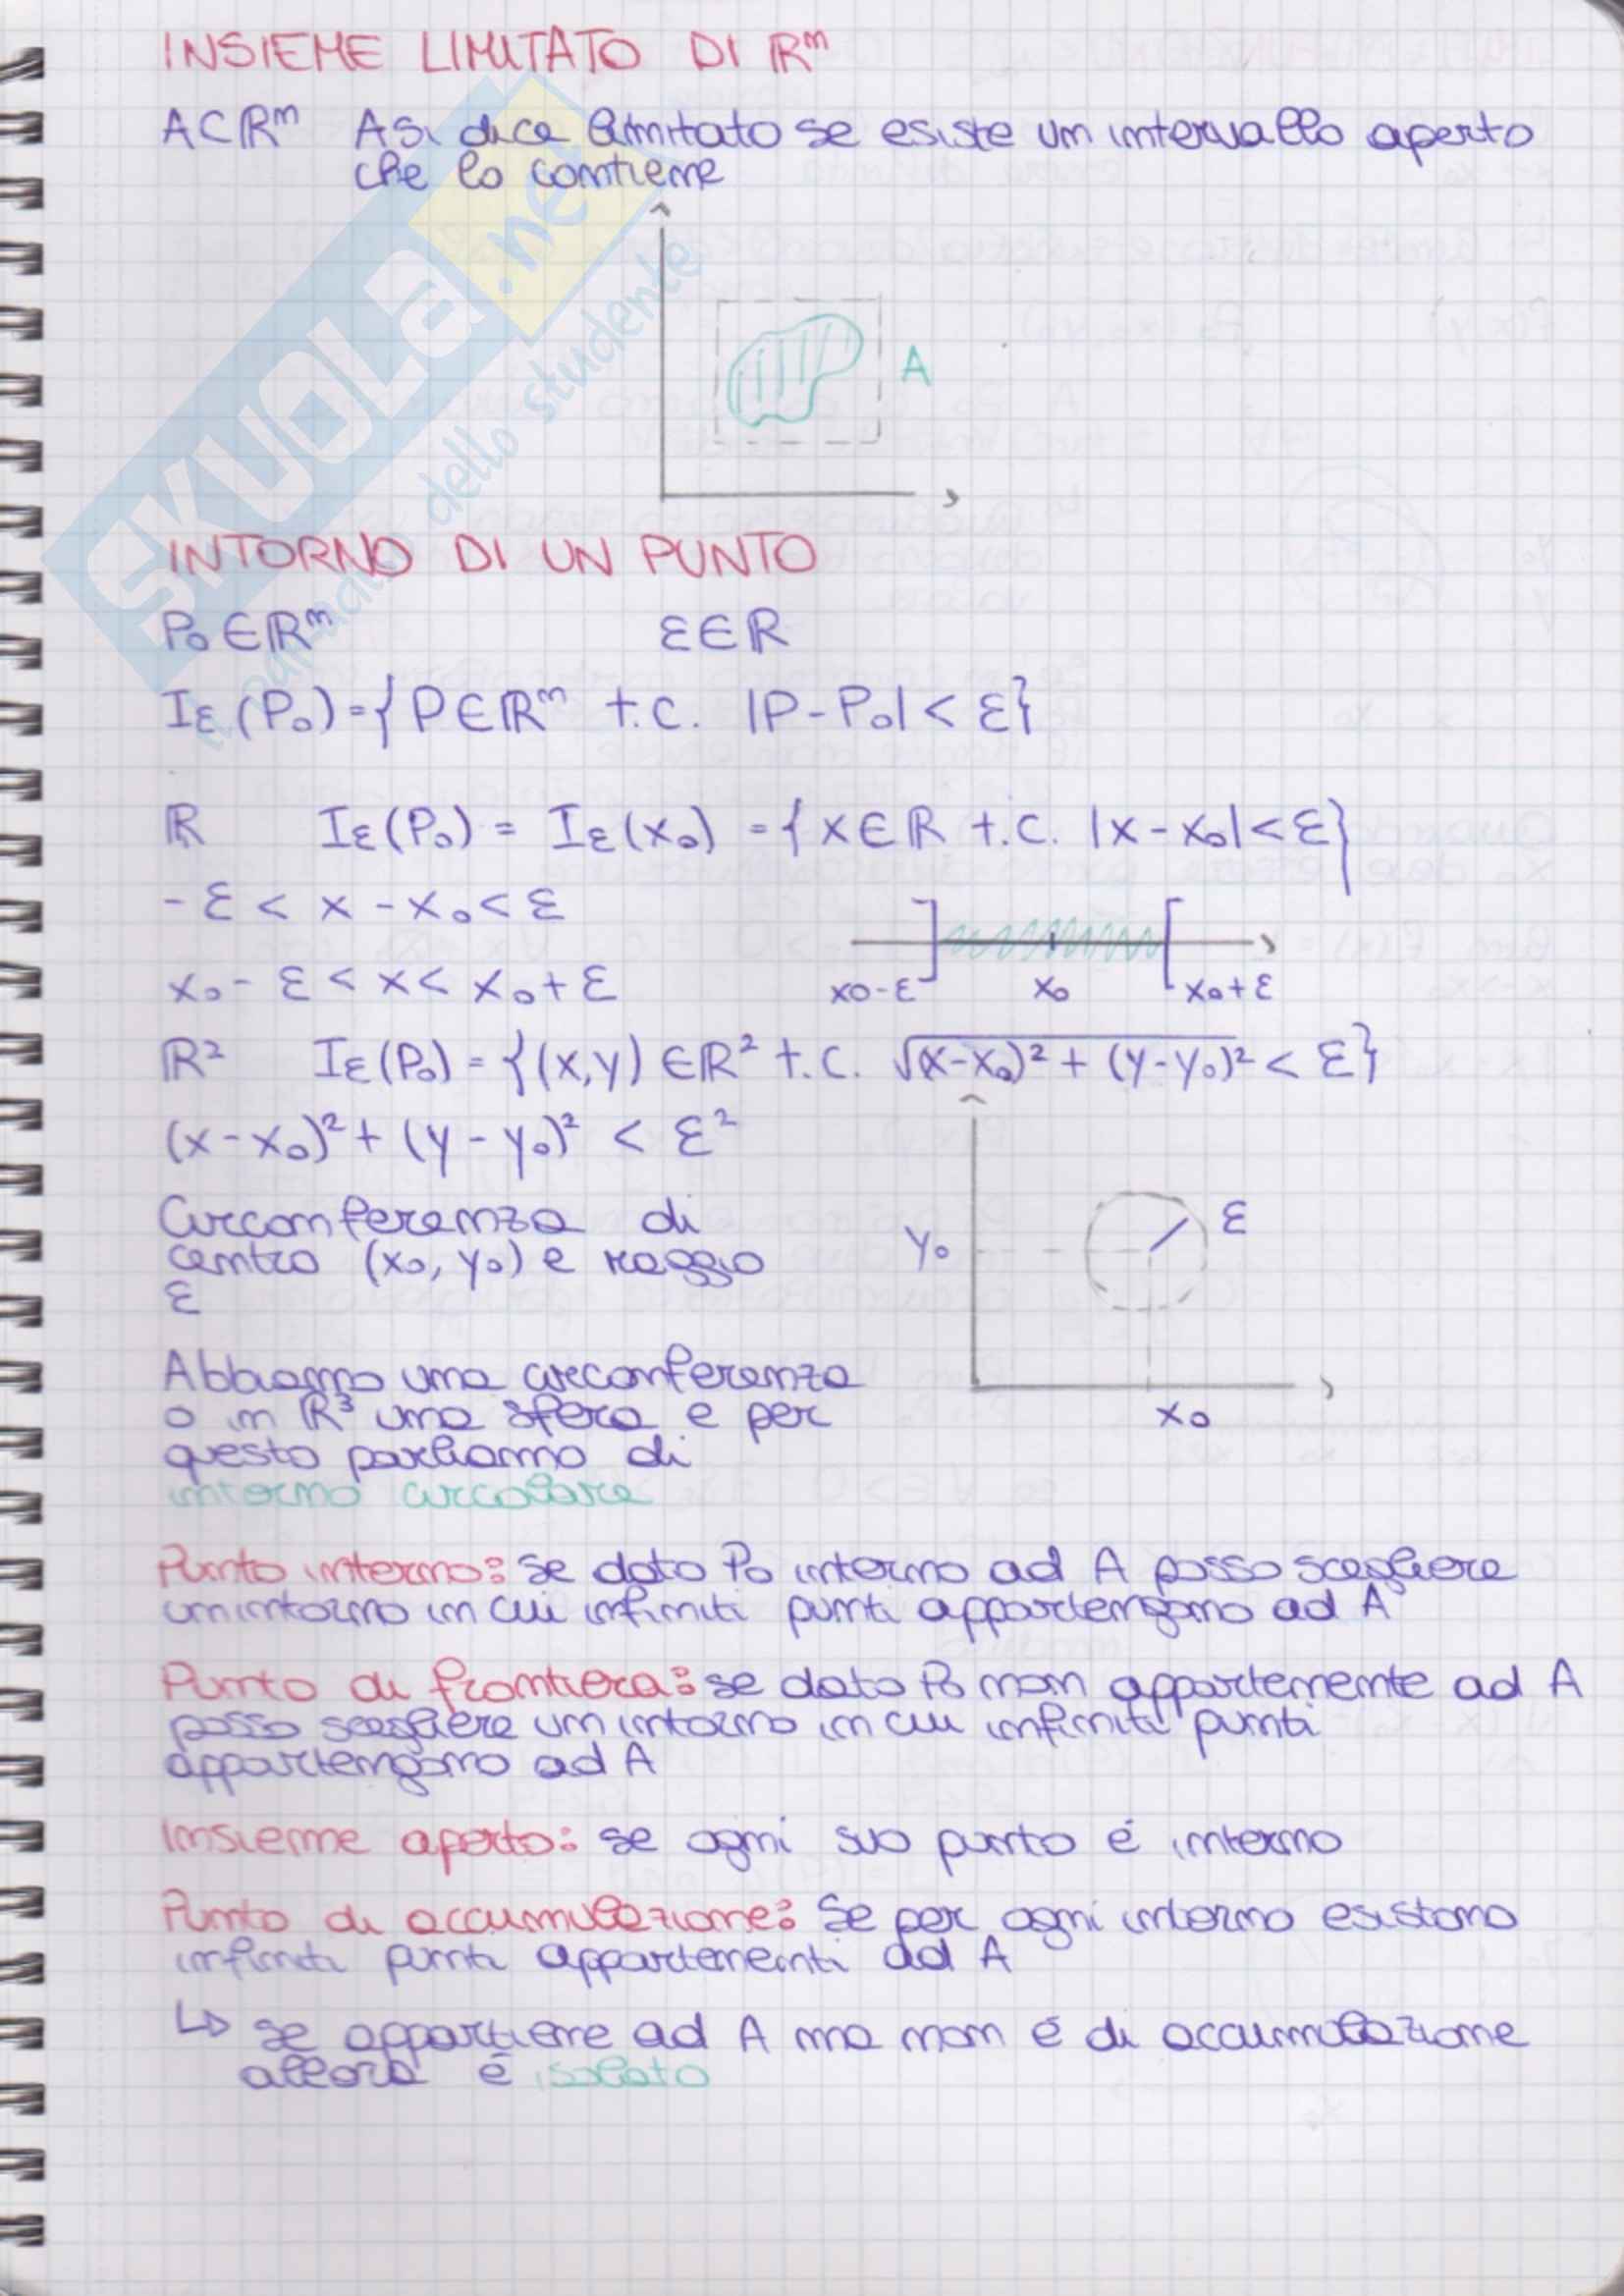 INSIEME LIMITATO DI ℝⁿ
A⊂ℝⁿ A si dice limitato se esiste un intervallo aperto
che lo contiene
A
INTORNO DI UN PUNTO
P₀∈ℝⁿ ε∈ℝ
Iε(P₀)={P∈ℝⁿ t.c. |P-P₀|<ε}
ℝ Iε(P₀) = Iε(x₀) ={x∈ℝ t.c. |x-x₀|<ε}
-ε < x-x₀<ε
x₀-ε < x < x₀+ε
x₀-ε x₀ x₀+ε
ℝ² Iε(P₀)={(x,y)∈ℝ² t.c. √(x-x₀)²+(y-y₀)² < ε}
(x-x₀)²+(y-y₀)² < ε²
Circonferenza di
centro (x₀,y₀) e raggio
ε
y₀ ε
x₀
Abbiamo una circonferenza
o in ℝ³ una sfera e per
questo parliamo di
intorno circolare
Punto interno: se dato P₀ interno ad A posso scegliere
un intorno in cui infiniti punti appartengono ad A
Punto di frontiera: se dato P₀ non appartenente ad A
posso scegliere un intorno in cui infiniti punti
appartengono ad A
Insieme aperto: se ogni suo punto é interno
Punto di accumulazione: Se per ogni intorno esistono
infiniti punti appartenenti ad A
↳ se appartiene ad A ma non é di accumulazione
allora é isolato
SKUOLA.net
dello studente